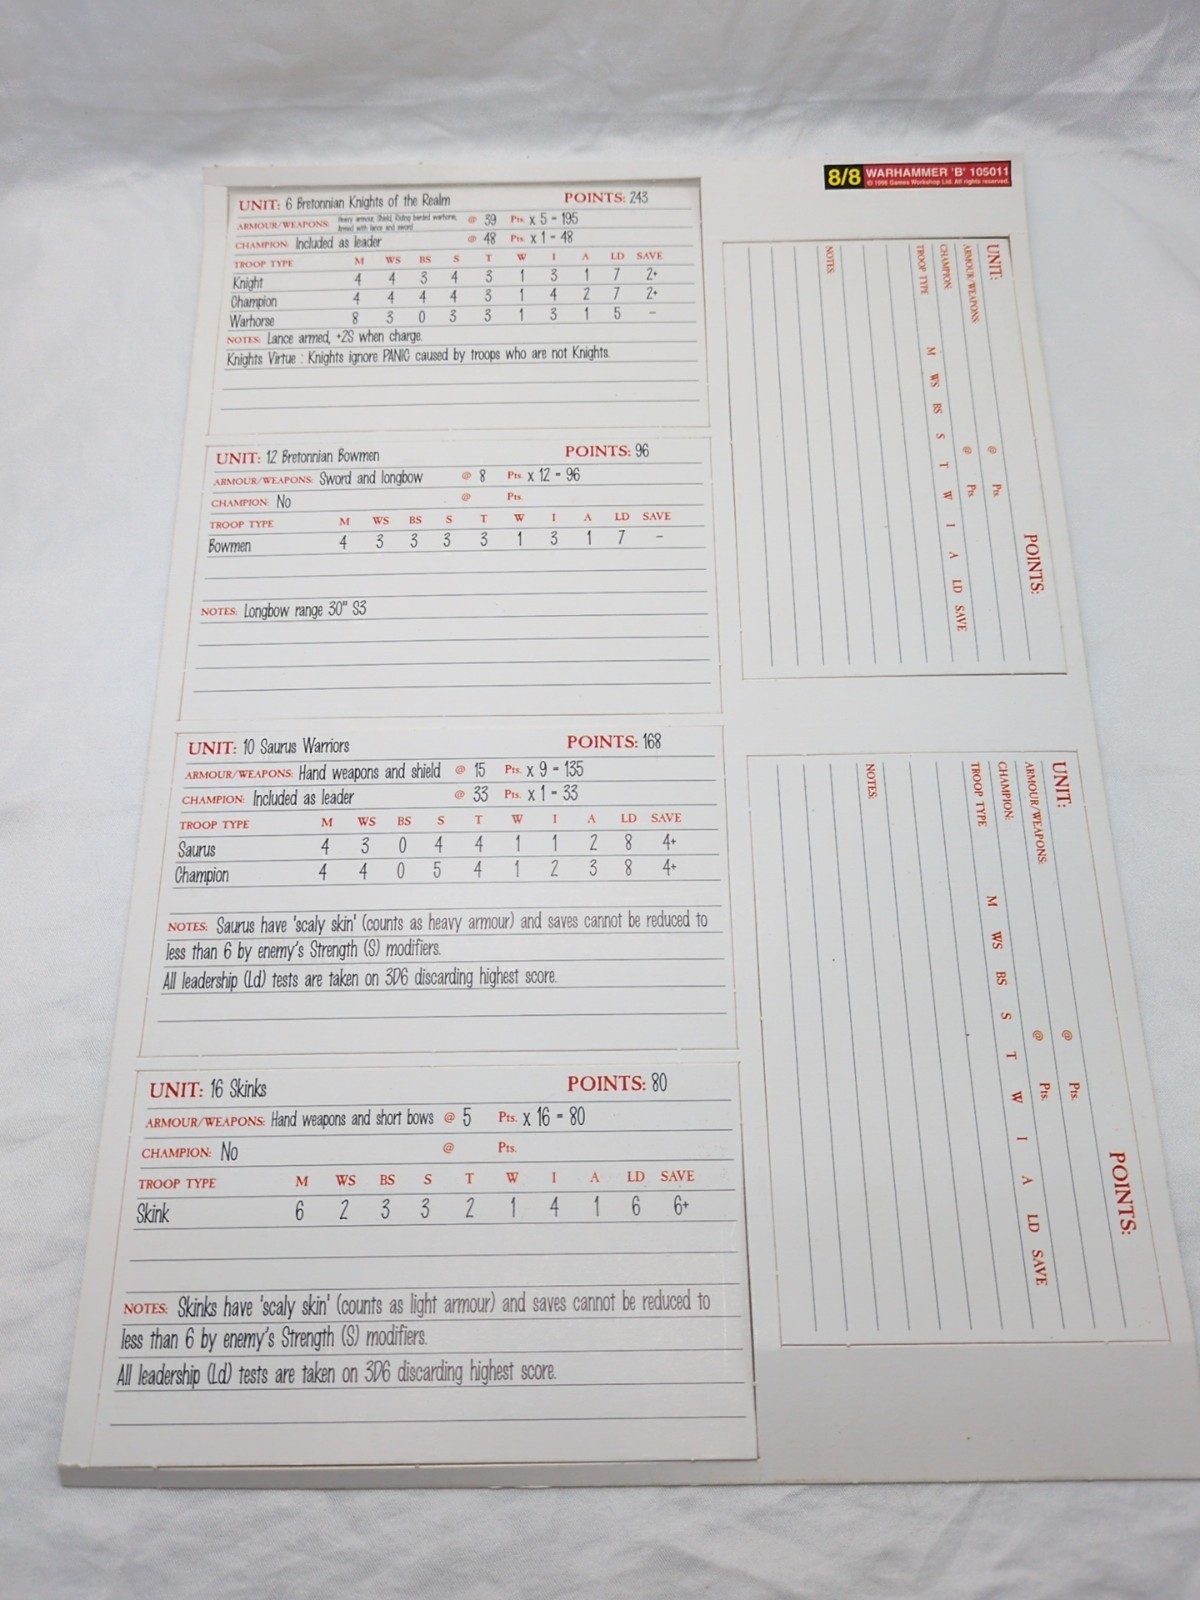 8/8 WARHAMMER 'B' 105011
© 1996 Games Workshop Ltd. All rights reserved.
UNIT: 6 Bretonnian Knights of the Realm POINTS: 243
ARMOUR/WEAPONS: Heavy armour, Shield, Riding barded warhorse, Armed with lance and sword @ 39 Pts. x 5 - 195
CHAMPION: Included as leader @ 48 Pts. x 1 - 48
TROOP TYPE M WS BS S T W I A LD SAVE
Knight 4 4 3 4 3 1 3 1 7 2+
Champion 4 4 4 4 3 1 4 2 7 2+
Warhorse 8 3 0 3 3 1 3 1 5 -
NOTES: Lance armed, +2S when charge.
Knights Virtue : Knights ignore PANIC caused by troops who are not Knights.
UNIT: 12 Bretonnian Bowmen POINTS: 96
ARMOUR/WEAPONS: Sword and longbow @ 8 Pts. x 12 - 96
CHAMPION: No @ Pts.
TROOP TYPE M WS BS S T W I A LD SAVE
Bowmen 4 3 3 3 3 1 3 1 7 -
NOTES: Longbow range 30" S3
UNIT: 10 Saurus Warriors POINTS: 168
ARMOUR/WEAPONS: Hand weapons and shield @ 15 Pts. x 9 - 135
CHAMPION: Included as leader @ 33 Pts. x 1 - 33
TROOP TYPE M WS BS S T W I A LD SAVE
Saurus 4 3 0 4 4 1 1 2 8 4+
Champion 4 4 0 5 4 1 2 3 8 4+
NOTES: Saurus have 'scaly skin' (counts as heavy armour) and saves cannot be reduced to
less than 6 by enemy's Strength (S) modifiers.
All leadership (Ld) tests are taken on 3D6 discarding highest score.
UNIT: 16 Skinks POINTS: 80
ARMOUR/WEAPONS: Hand weapons and short bows @ 5 Pts. x 16 - 80
CHAMPION: No @ Pts.
TROOP TYPE M WS BS S T W I A LD SAVE
Skink 6 2 3 3 2 1 4 1 6 6+
NOTES: Skinks have 'scaly skin' (counts as light armour) and saves cannot be reduced to
less than 6 by enemy's Strength (S) modifiers.
All leadership (Ld) tests are taken on 3D6 discarding highest score.
UNIT: POINTS:
ARMOUR/WEAPONS: @ Pts.
CHAMPION: @ Pts.
TROOP TYPE M WS BS S T W I A LD SAVE
NOTES:
UNIT: POINTS:
ARMOUR/WEAPONS: @ Pts.
CHAMPION: @ Pts.
TROOP TYPE M WS BS S T W I A LD SAVE
NOTES: